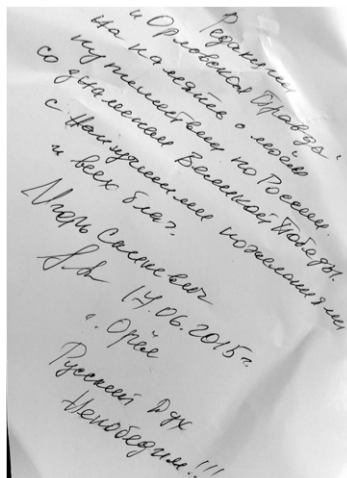 Редакции
"Орловская Правда"
на память о моём
путешествии по России
со знаменем Великой Победы.
с Наилучшими пожеланиями
и всех благ.
Игорь
14.06.2015г.
г. Орёл
Русский Дух
Непобедим!!!